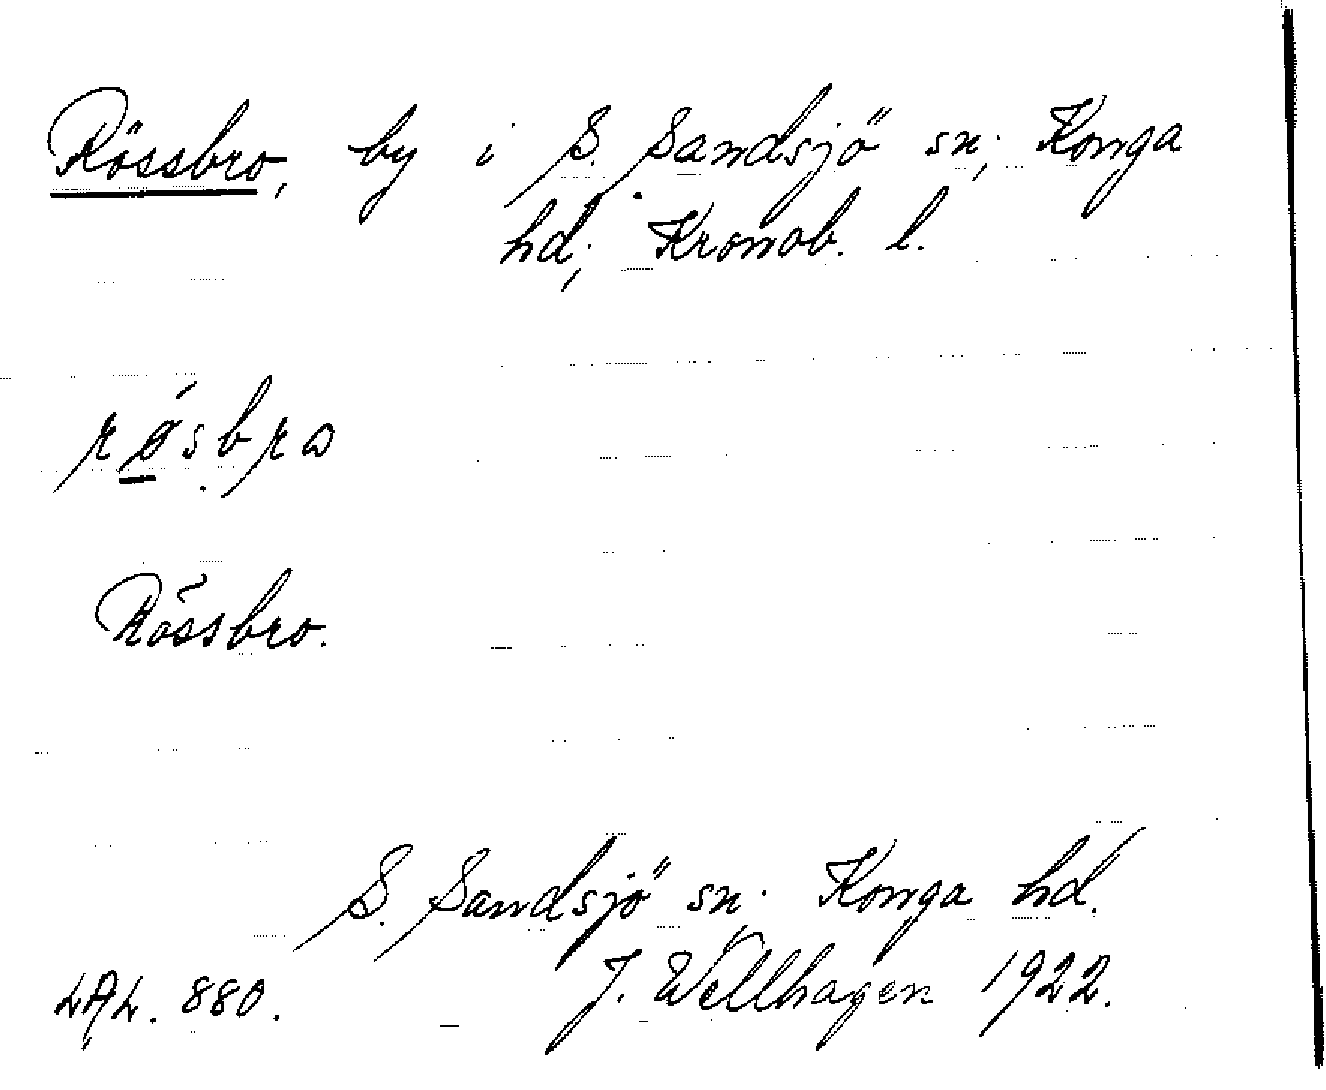 Rössbro, by i S. Sandsjö sn; Konga
hd; Kronob. l.
røsbro
Rössbro.
S. Sandsjö sn. Konga hd.
LAL. 880. J. Wellhagen 1922.